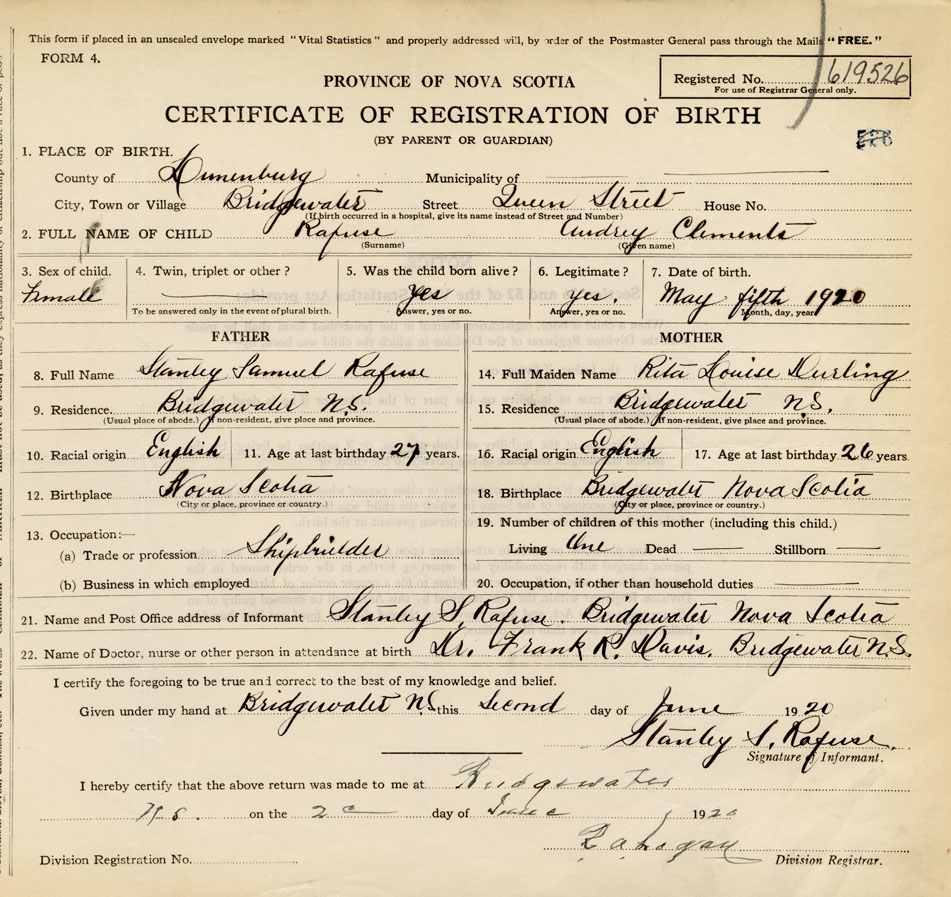 This form if placed in an unsealed envelope marked "Vital Statistics" and properly addressed will, by order of the Postmaster General pass through the Mails "FREE."
FORM 4.
PROVINCE OF NOVA SCOTIA
Registered No. 619526
For use of Registrar General only.
CERTIFICATE OF REGISTRATION OF BIRTH
(BY PARENT OR GUARDIAN)
1. PLACE OF BIRTH.
County of Lunenburg Municipality of
City, Town or Village Bridgewater Street Queen Street House No.
(If birth occurred in a hospital, give its name instead of Street and Number)
2. FULL NAME OF CHILD Rafuse Audrey Clements
(Surname) (Given name)
3. Sex of child. 4. Twin, triplet or other? 5. Was the child born alive? 6. Legitimate? 7. Date of birth.
Female Yes Yes. May fifth 1920
To be answered only in the event of plural birth. Answer, yes or no. Answer, yes or no. Month, day, year
FATHER MOTHER
8. Full Name Stanley Samuel Rafuse
14. Full Maiden Name Rita Louise Durling
9. Residence. Bridgewater N.S.
15. Residence. Bridgewater N.S.
(Usual place of abode.) If non-resident, give place and province.
(Usual place of abode.) If non-resident, give place and province.
10. Racial origin English 11. Age at last birthday 27 years.
16. Racial origin English 17. Age at last birthday 26 years.
12. Birthplace Nova Scotia
18. Birthplace Bridgewater Nova Scotia
(City or place, province or country.)
(City or place, province or country.)
13. Occupation:—
19. Number of children of this mother (including this child.)
(a) Trade or profession Shipbuilder
Living One Dead Stillborn
(b) Business in which employed
20. Occupation, if other than household duties
21. Name and Post Office address of Informant Stanley S. Rafuse. Bridgewater Nova Scotia
22. Name of Doctor, nurse or other person in attendance at birth Dr. Frank R. Davis. Bridgewater N.S.
I certify the foregoing to be true and correct to the best of my knowledge and belief.
Given under my hand at Bridgewater N.S. this Second day of June 1920
Stanley S. Rafuse.
Signature of Informant.
I hereby certify that the above return was made to me at Bridgewater
N.S. on the day of June 1920
Division Registration No. Division Registrar.